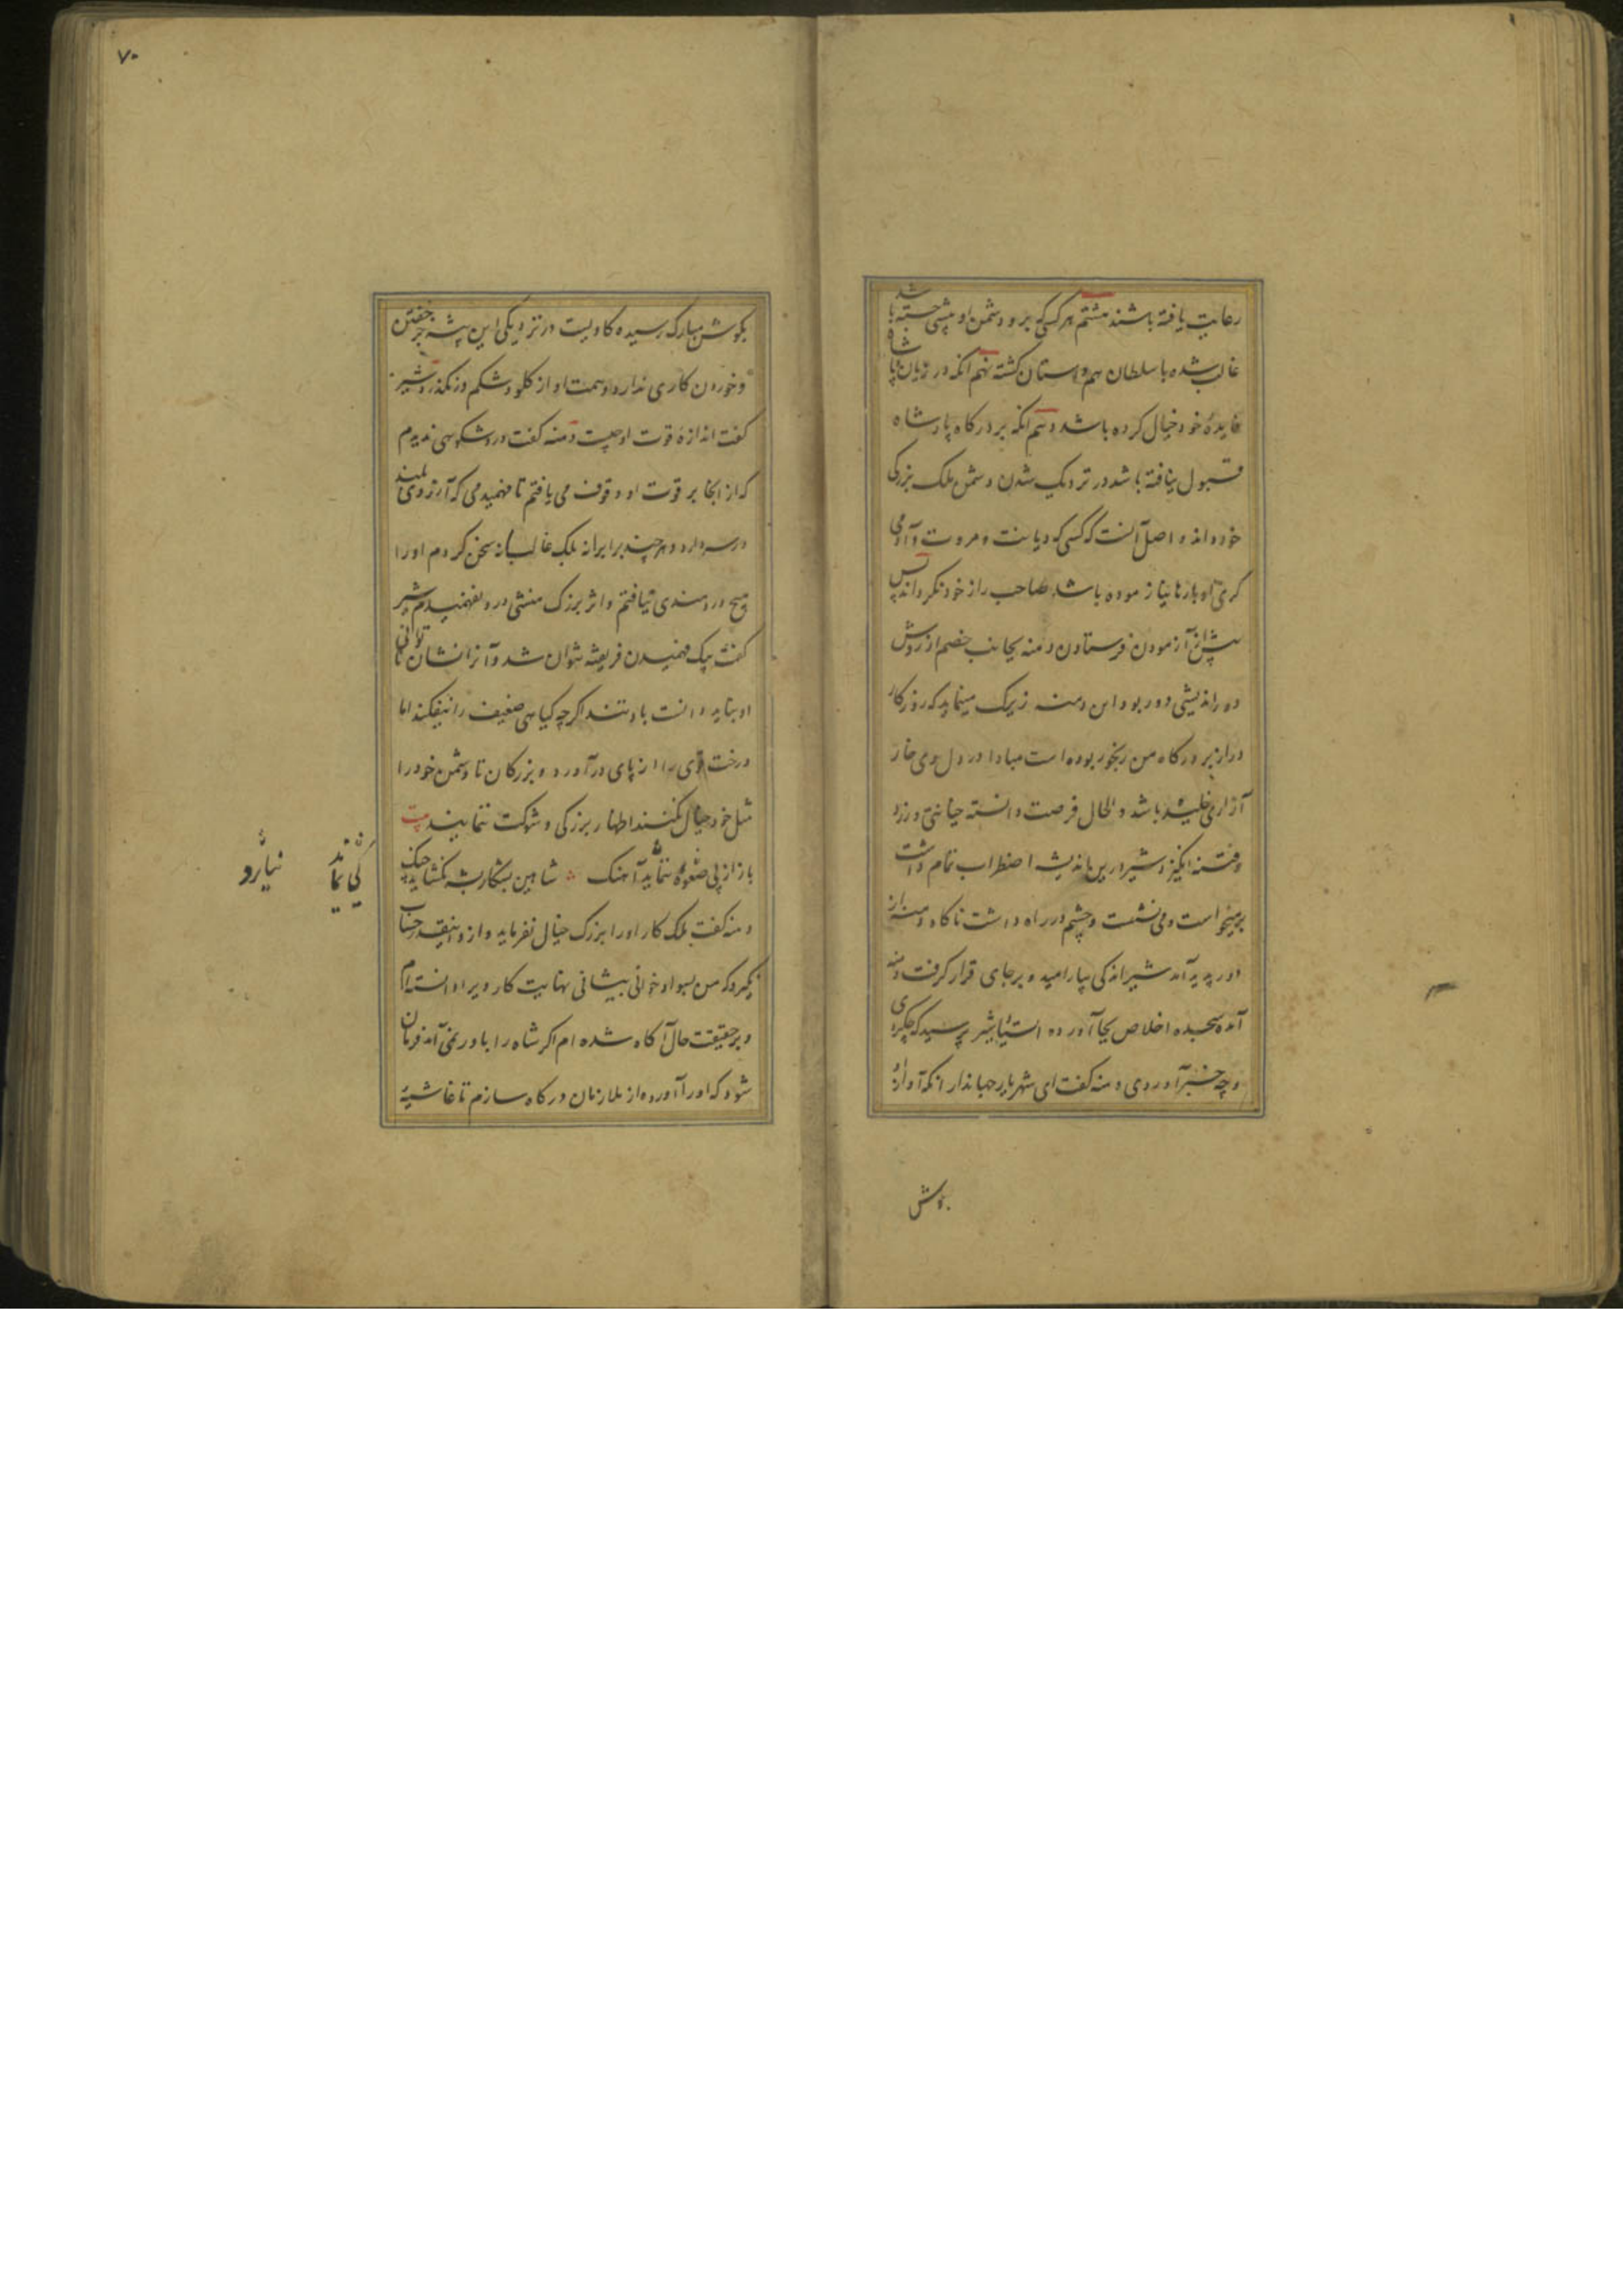 رعایت یافته باشند هشتم هر کسی که برو دشمن او پیشی جسته باشد
غالب شده با سلطان هم داستان گشته نهم آنکه در زیان پادشاه
فایدهٔ خود خیال کرده باشد دهم آنکه بر درگاه پادشاه
قبول نیافته باشد در نزدیک شدن دشمن ملک بزرگی
خود داند و اصل آنست که کسی که دیانت و مروت و آدمی
گری او بارها نیازموده باشد صاحب راز خود نگرداند پس
پیش از آزمودن فرستادن دمنه بجانب خصم از روش
دور اندیشی دور بود و این دمنه زیرک مینماید که روزگار
دراز بر درگاه من رنجور بوده است مبادا در دل وی خار
آزاری خلیده باشد و الحال فرصت دانسته خیانتی ورزد
و فتنه انگیزد شیر درین اندیشه اضطراب تمام داشت
برمیخواست و می نشست و چشم در راه داشت ناگاه دمنه از
دور پدید آمد شیر اندکی بیارامید و بر جای قرار گرفت دمنه
آمده سجده اخلاص بجا آورده استاد شیر پرسید که چه کردی
و چه خبر آوردی دمنه گفت ای شهریار جهاندار آنکه آواز او
بگوش
۷۰
بگوش مبارک رسیده گاویست در نزدیکی این بیشه جز خفتن
و خوردن کاری ندارد و همت او از گلو و شکم در نگذرد شیر
گفت اندازهٔ قوت او چیست دمنه گفت درو شکوهی ندیدم
که از آنجا بر قوت او وقوف می یافتم تا فهمیدمی که آرزوی بلند
در سر دارد و هر چند برابرانه بلک غالبانه سخن کردم او را
هیچ دردمندی نیافتم و اثر بزرگ منشی درو نفهمیدم شیر
گفت بیک فهمیدن فریفته نتوان شد و آنرا نشان ناتوانی
او نباید دانست باد تند اگرچه گیاهی ضعیف را نیفکند اما
درخت قوی را از پای درآورد و بزرگان تا دشمن خود را
مثل خود خیال نکنند اظهار بزرگی و شوکت ننمایند بیت
باز از پی صعوه ننماید آهنگ شاهین بشکار پشه نگشاید چنگ
کی نماید نیارد
دمنه گفت ملک کار او را بزرگ خیال نفرماید و ازو اینقدر حساب
نگیرد که من بسواد خوانی پیشانی نهایت کار ویرا دانسته ام
و بر حقیقت حال آگاه شده ام اگر شاه را باور نمی آید فرمان
شود که او را آورده از ملازمان درگاه سازم تا غاشیهٔ